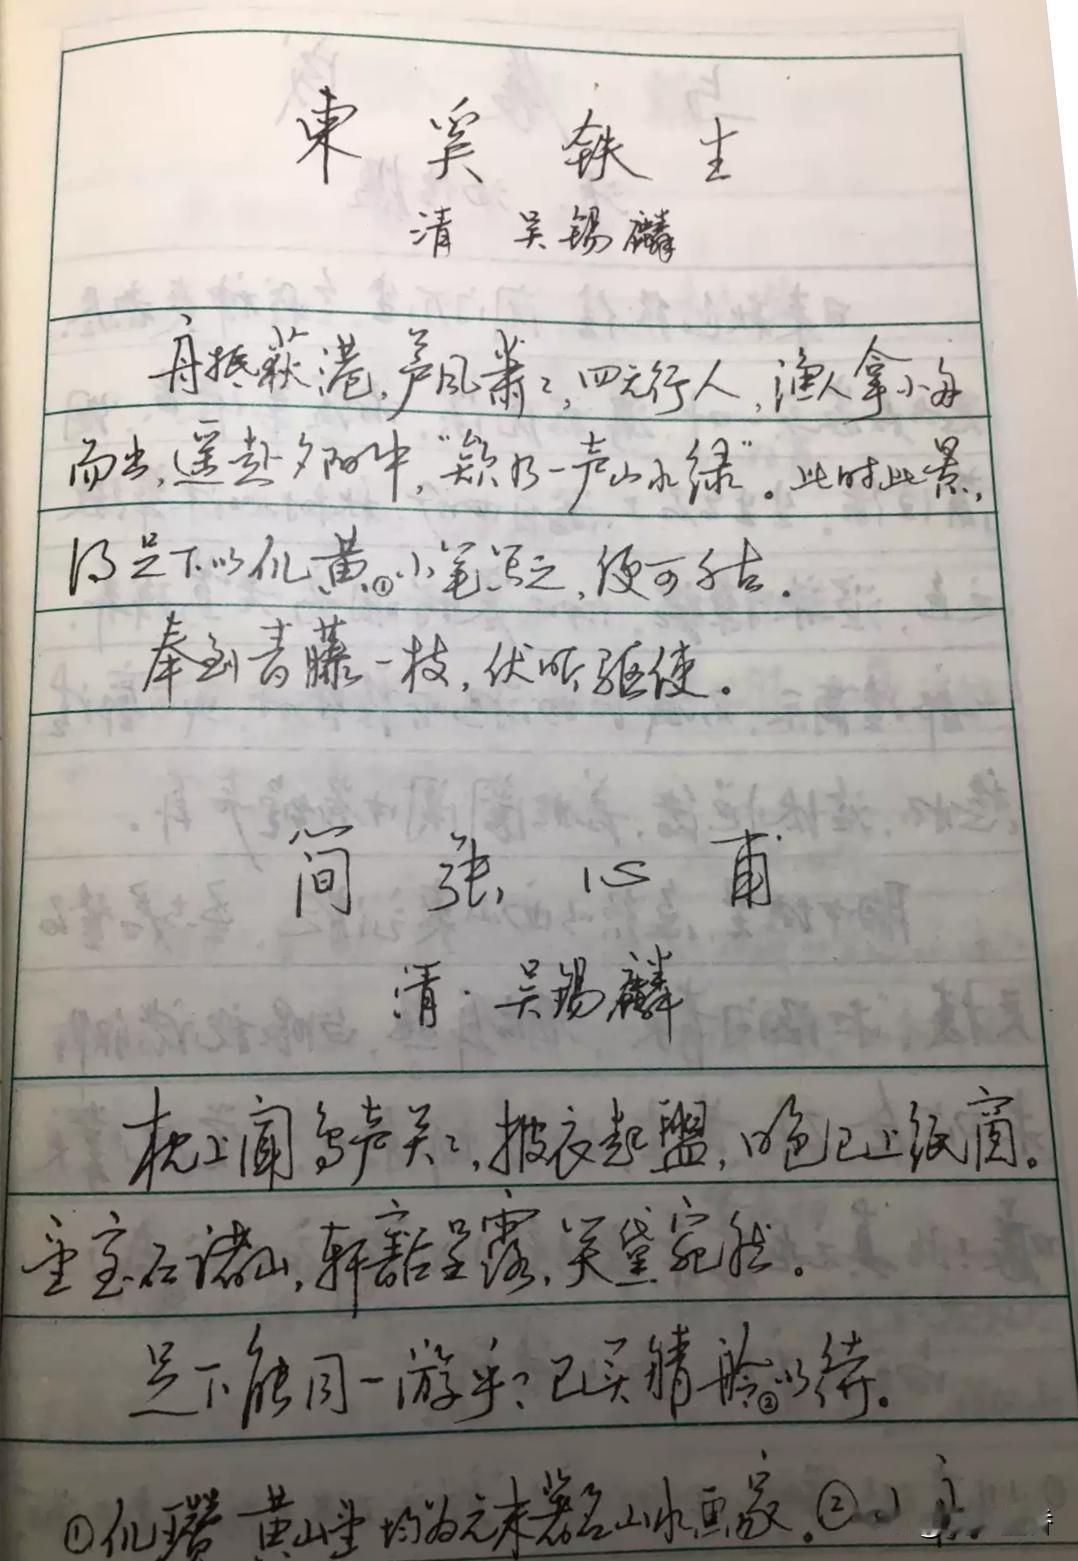 東奚鉄生
清 吴锡麟
舟抵荻港,芦风萧々,四无行人,渔人拿小舟
而出,遥赴夕阳中,“欸乃一声山水绿”。此时此景,
得足下以倪黄①小笔写之,便可千古。
奉到青藤一枝,伏听驱使。
简张心甫
清·吴锡麟
枕上闻鸟声关々,披衣起盥,日色已上纸窗。
望宝石诸山,轩豁呈露,笑黛宛然。
足下能同一游乎?已买晴舲②以待。
①倪瓒 黄山望均为元末著名山水画家。②小